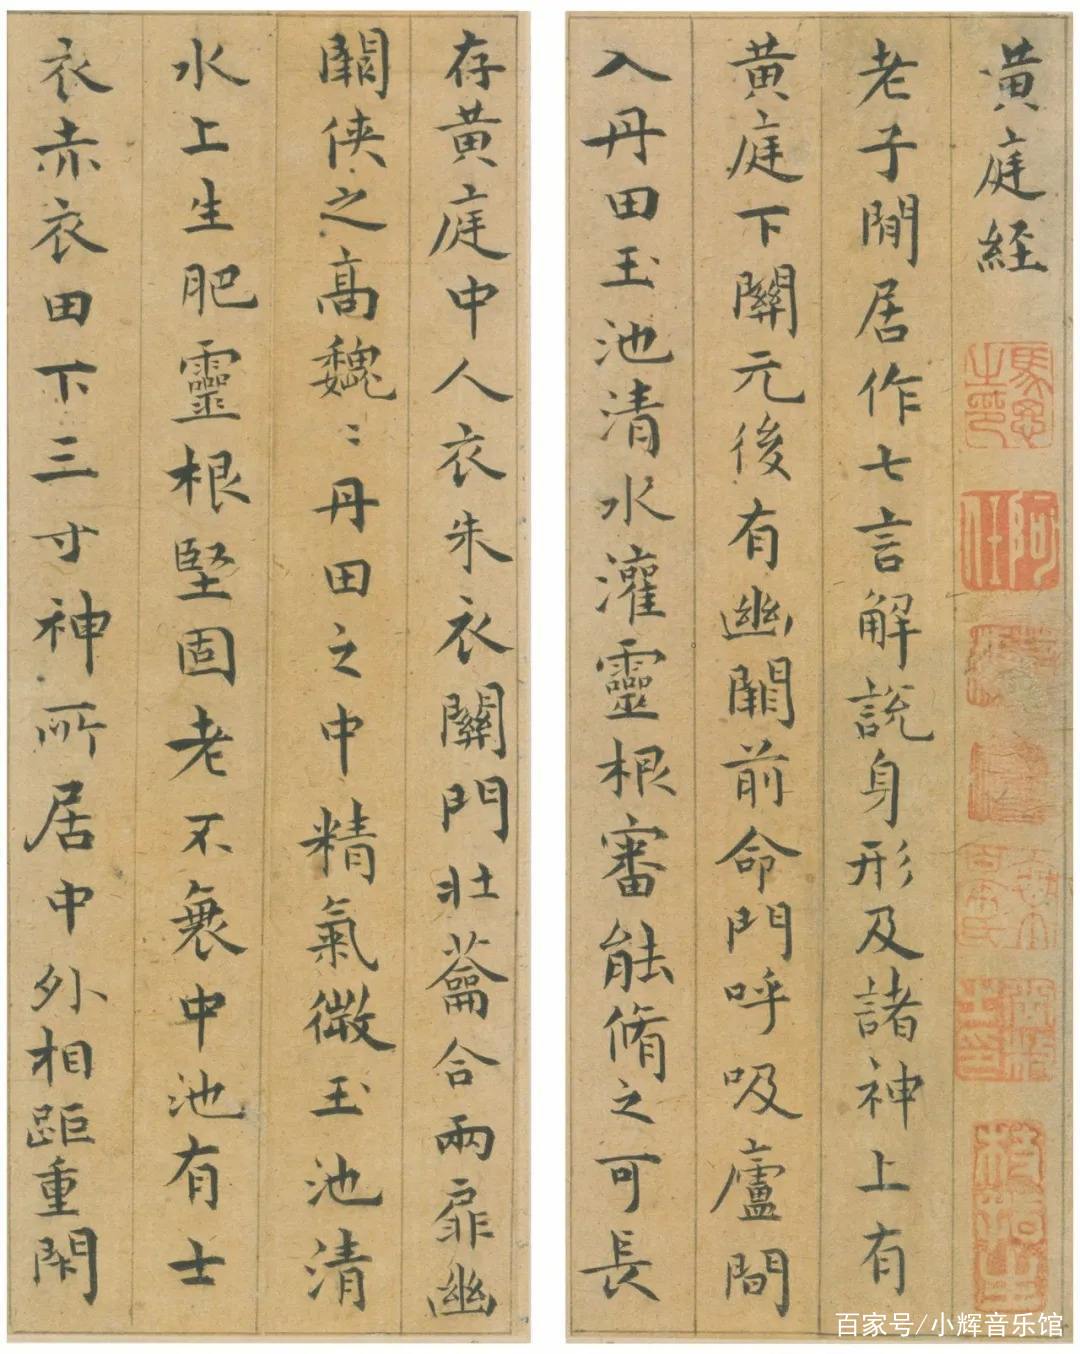 黄庭経
老子閒居作七言解說身形及諸神上有
黄庭下關元後有幽闕前命門呼吸廬間
入丹田玉池清水灌靈根審能脩之可長
存黄庭中人衣朱衣關門壯蘥合兩扉幽
闕侠之高魏〻丹田之中精氣微玉池清
水上生肥靈根堅固老不衰中池有士
衣赤衣田下三寸神所居中外相距重閇
阿
百家号/小辉音乐馆